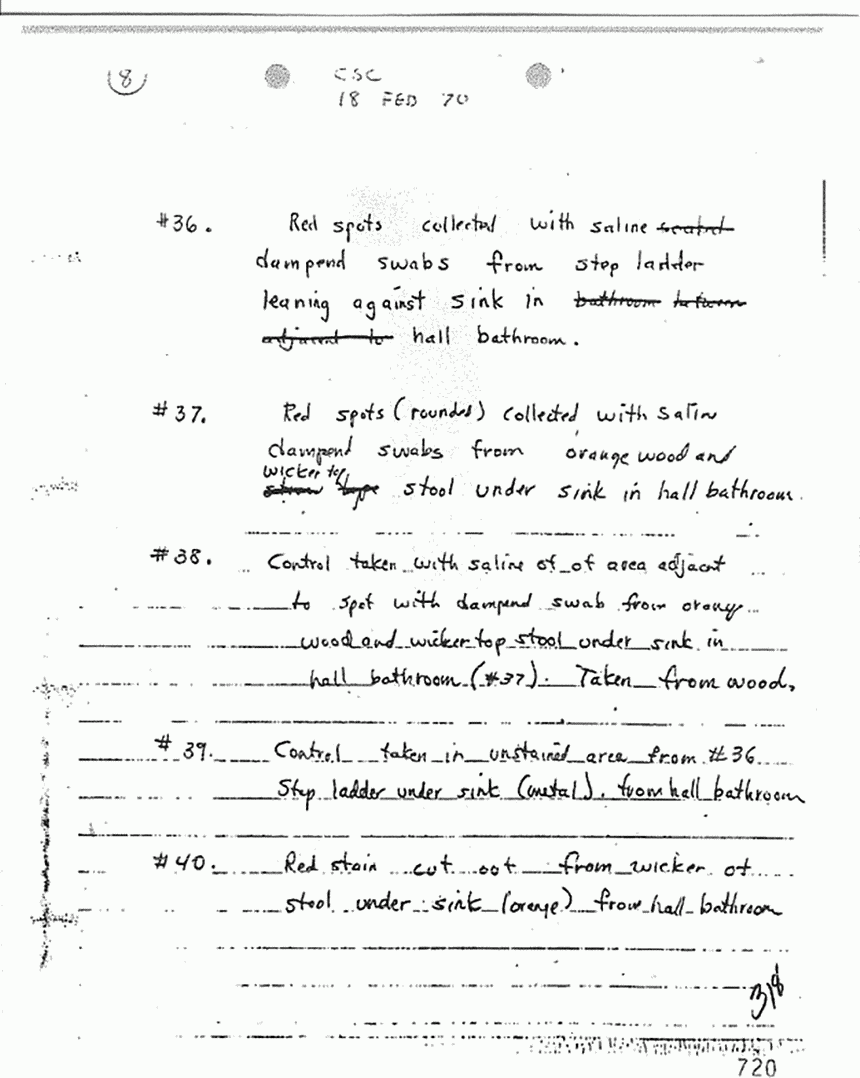 8
CSC
18 FEB 70
#36. Red spots collected with saline
dampend swabs from step ladder
leaning against sink in bathroom between
adjacent to hall bathroom.
#37. Red spots (rounded) collected with Salin
dampend swabs from orange wood and
wicker top
type stool under sink in hall bathroom.
#38. Control taken with saline of of area adjacent
to spot with dampend swab from orange
wood and wicker top stool under sink in
hall bathroom (#37). Taken from wood.
# 39. Control taken in unstained area from #36
Step ladder under sink (metal). from hall bathroom
#40. Red stain cut out from wicker of
stool under sink (orange) from hall bathroom
720